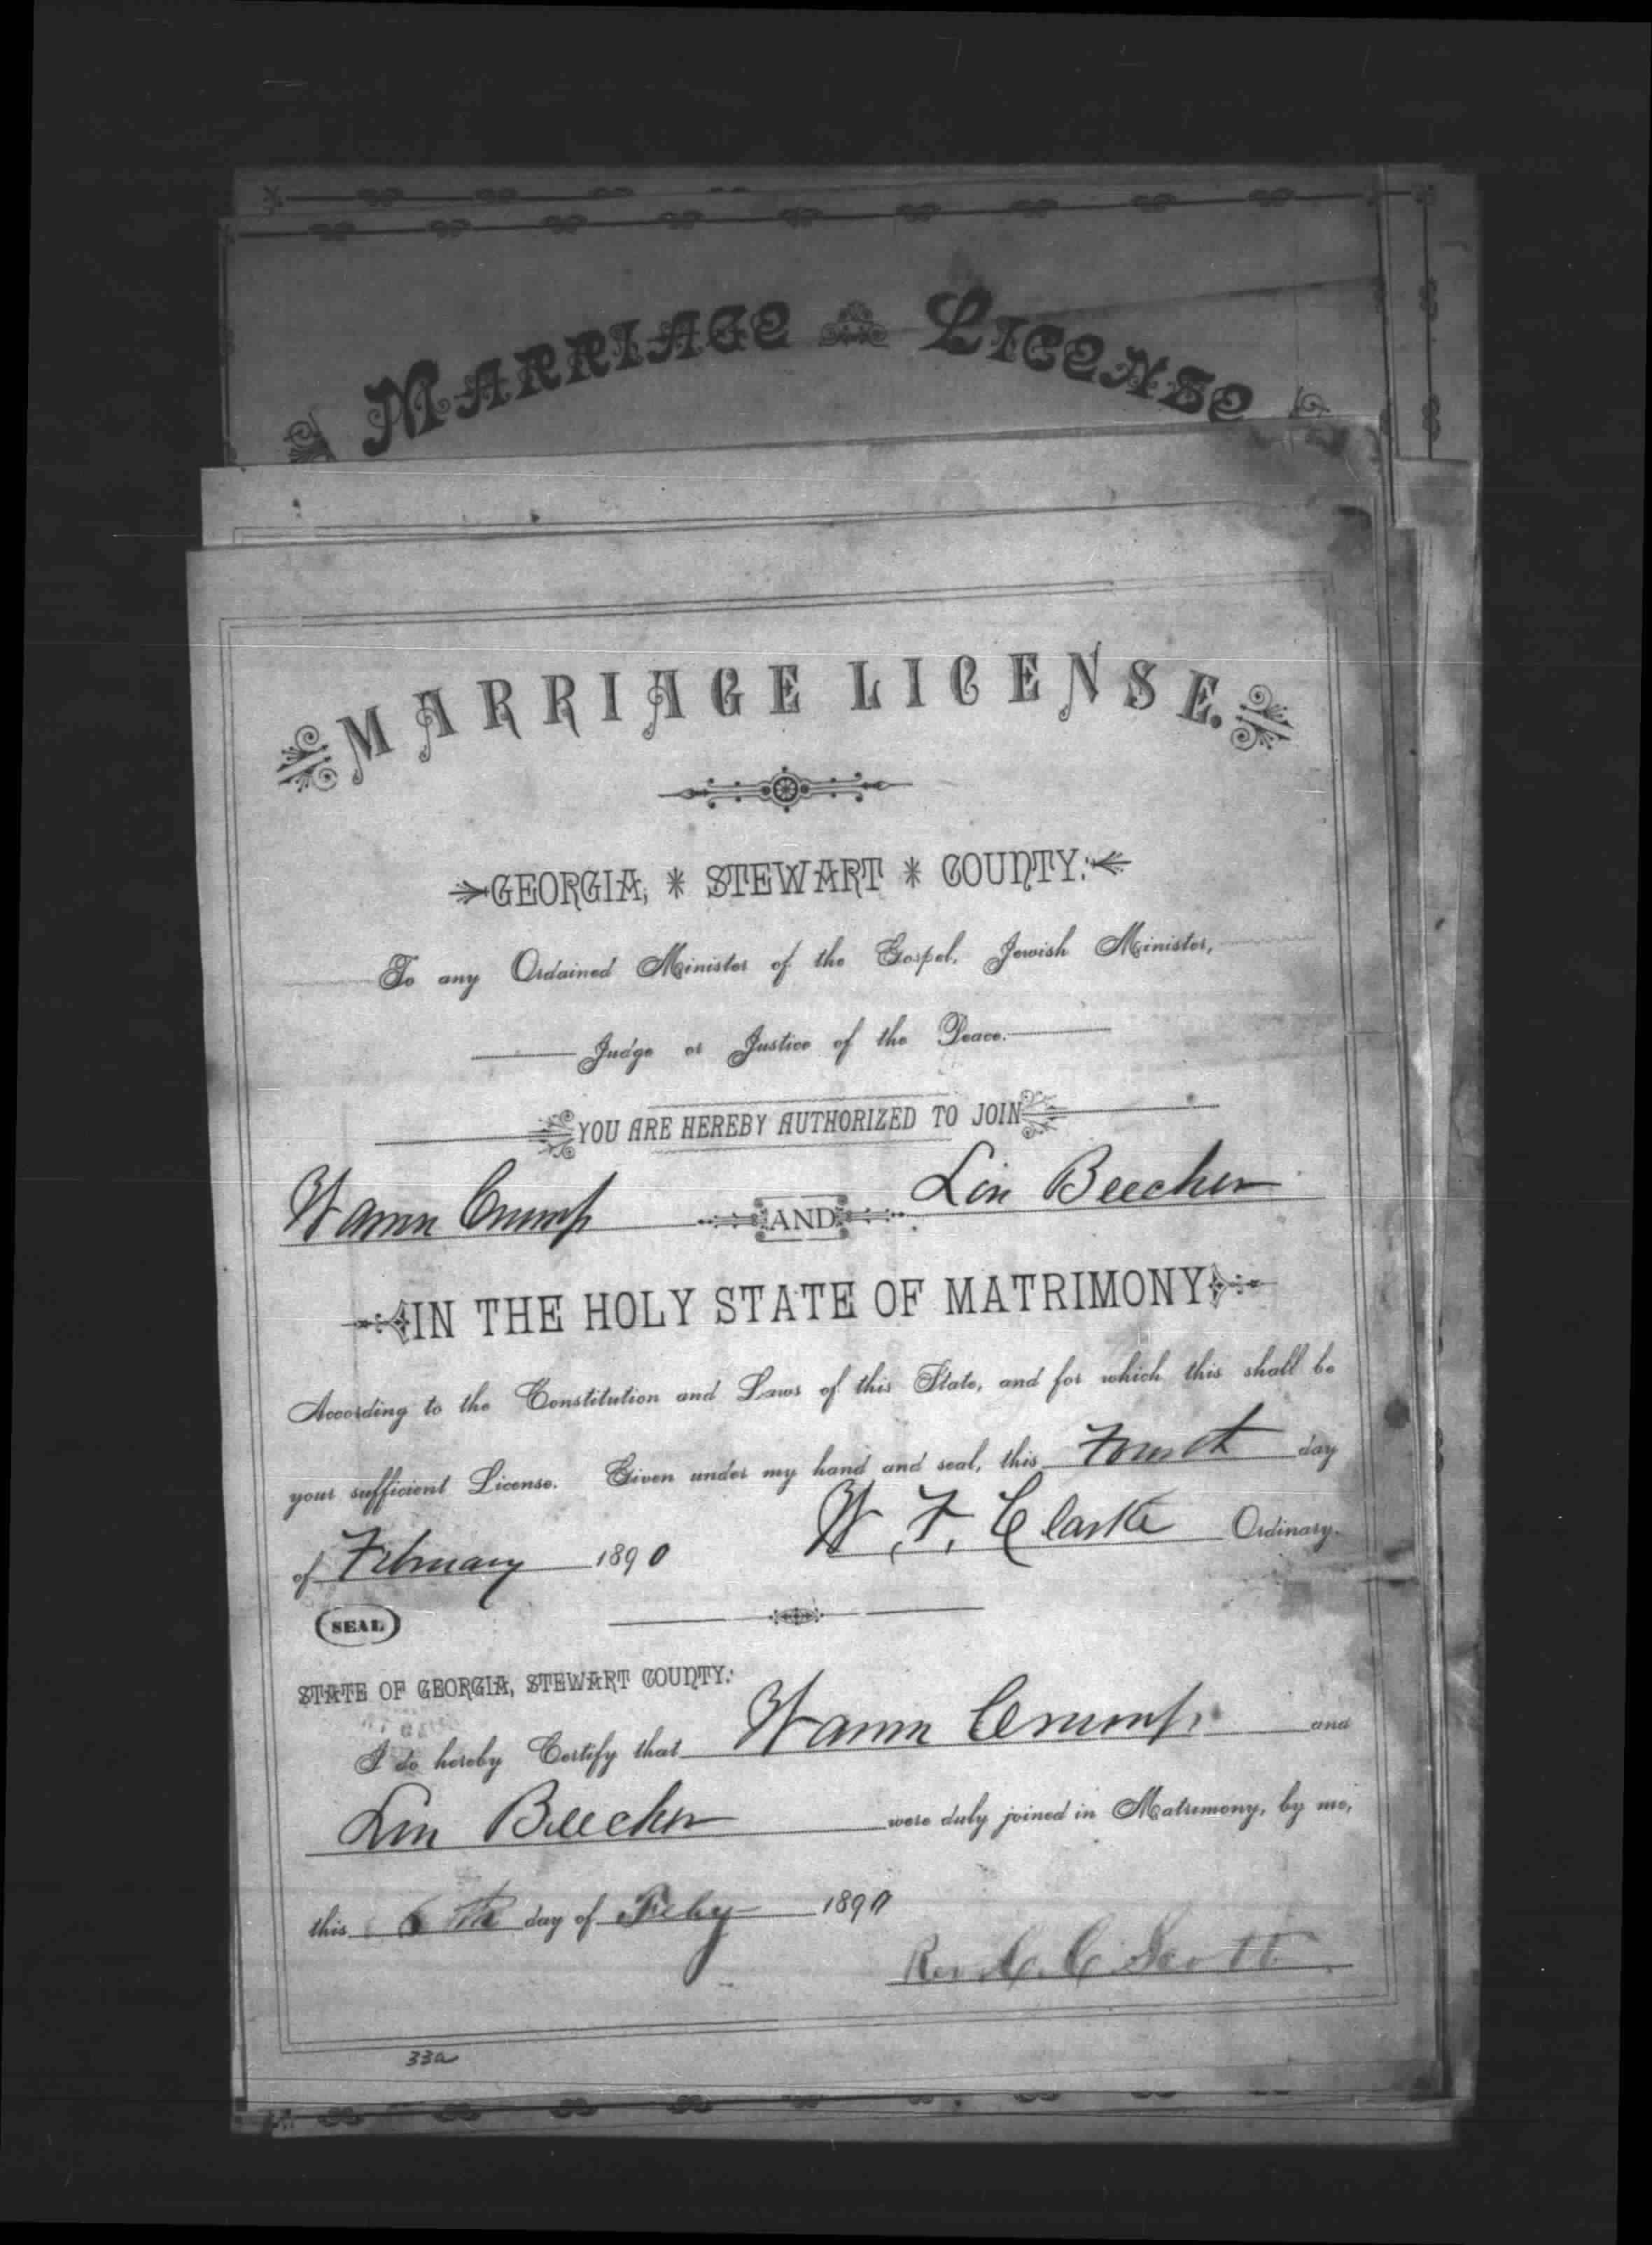 MARRIAGE LICENSE
MARRIAGE LICENSE.
GEORGIA, * STEWART * COUNTY:
To any Ordained Minister of the Gospel, Jewish Minister,
Judge or Justice of the Peace.
YOU ARE HEREBY AUTHORIZED TO JOIN
Warren Crump AND Lin Beecher
IN THE HOLY STATE OF MATRIMONY
According to the Constitution and Laws of this State, and for which this shall be
your sufficient License. Given under my hand and seal, this Fourth day
of February 1890 W. F. Clarke Ordinary.
SEAL
STATE OF GEORGIA, STEWART COUNTY:
I do hereby Certify that Warren Crump and
Lin Beecher were duly joined in Matrimony, by me,
this 6th day of Feby 1890
Rev. C. C. Scott
33a